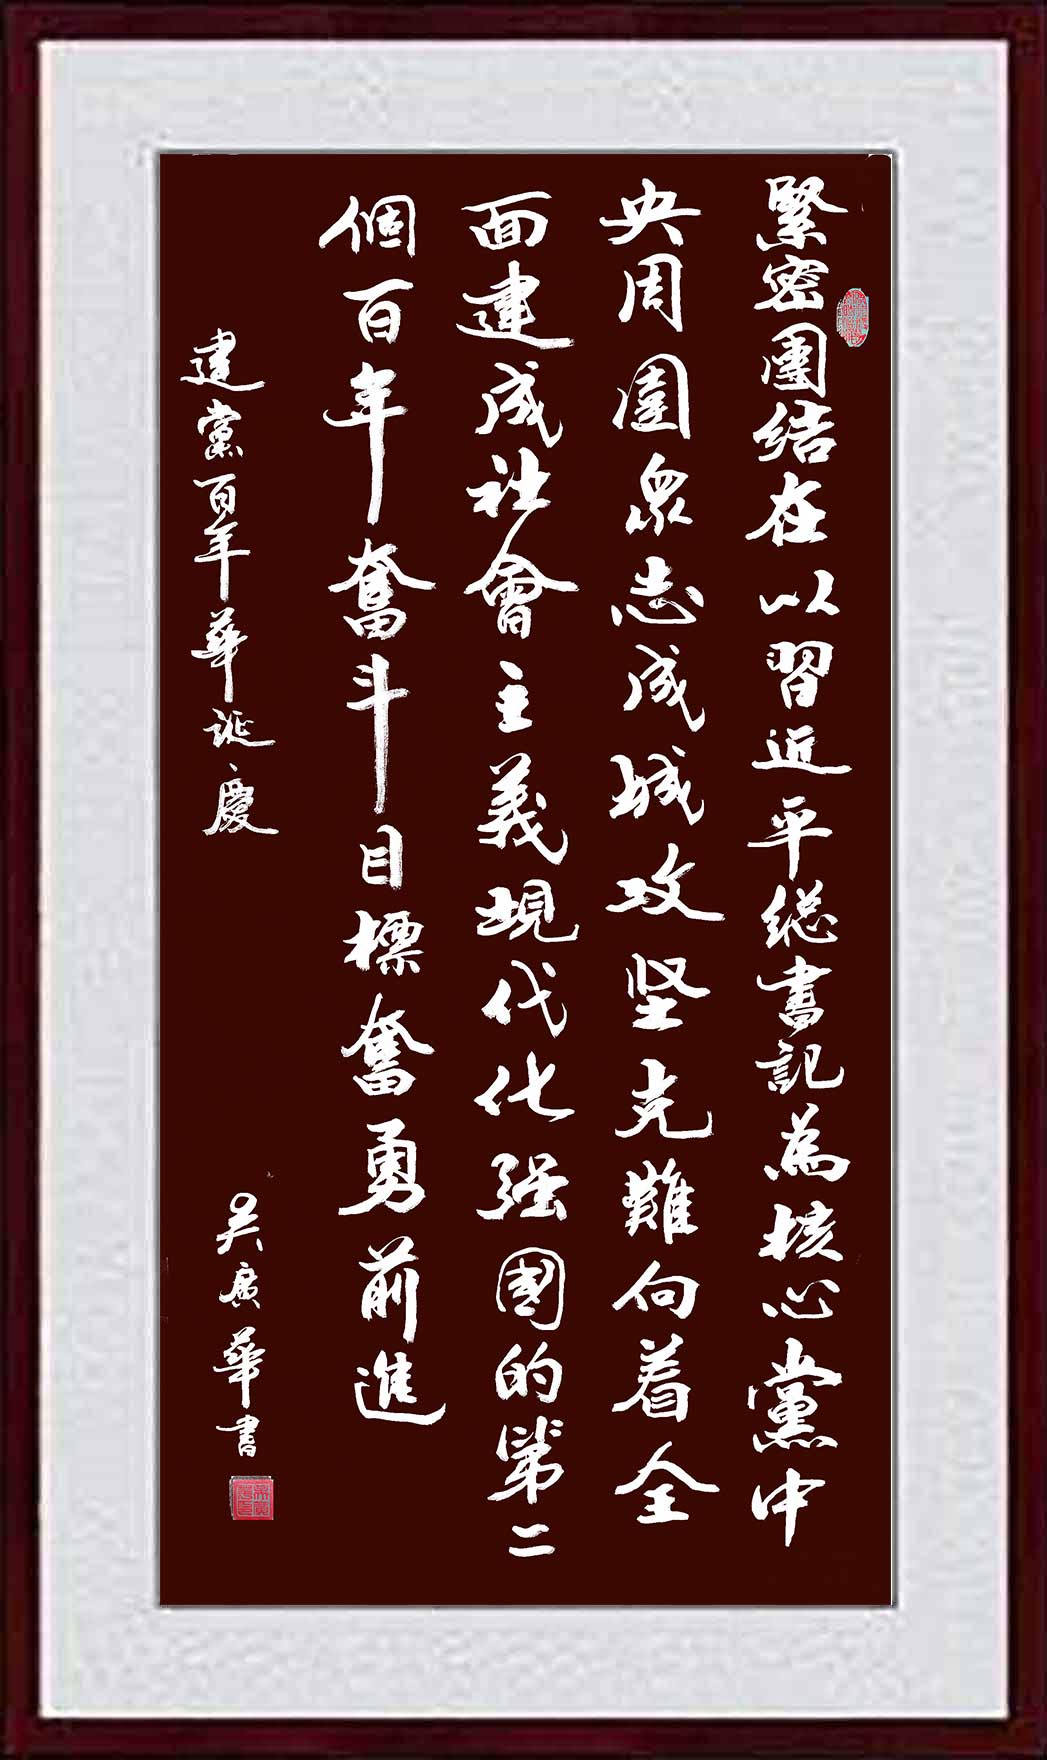 緊密團结在以習近平總書記為核心黨中
央周圍眾志成城攻坚克難向着全
面建成社會主義現代化强國的第二
個百年奮斗目標奮勇前進
建黨百年華誕、慶
吴廣華書